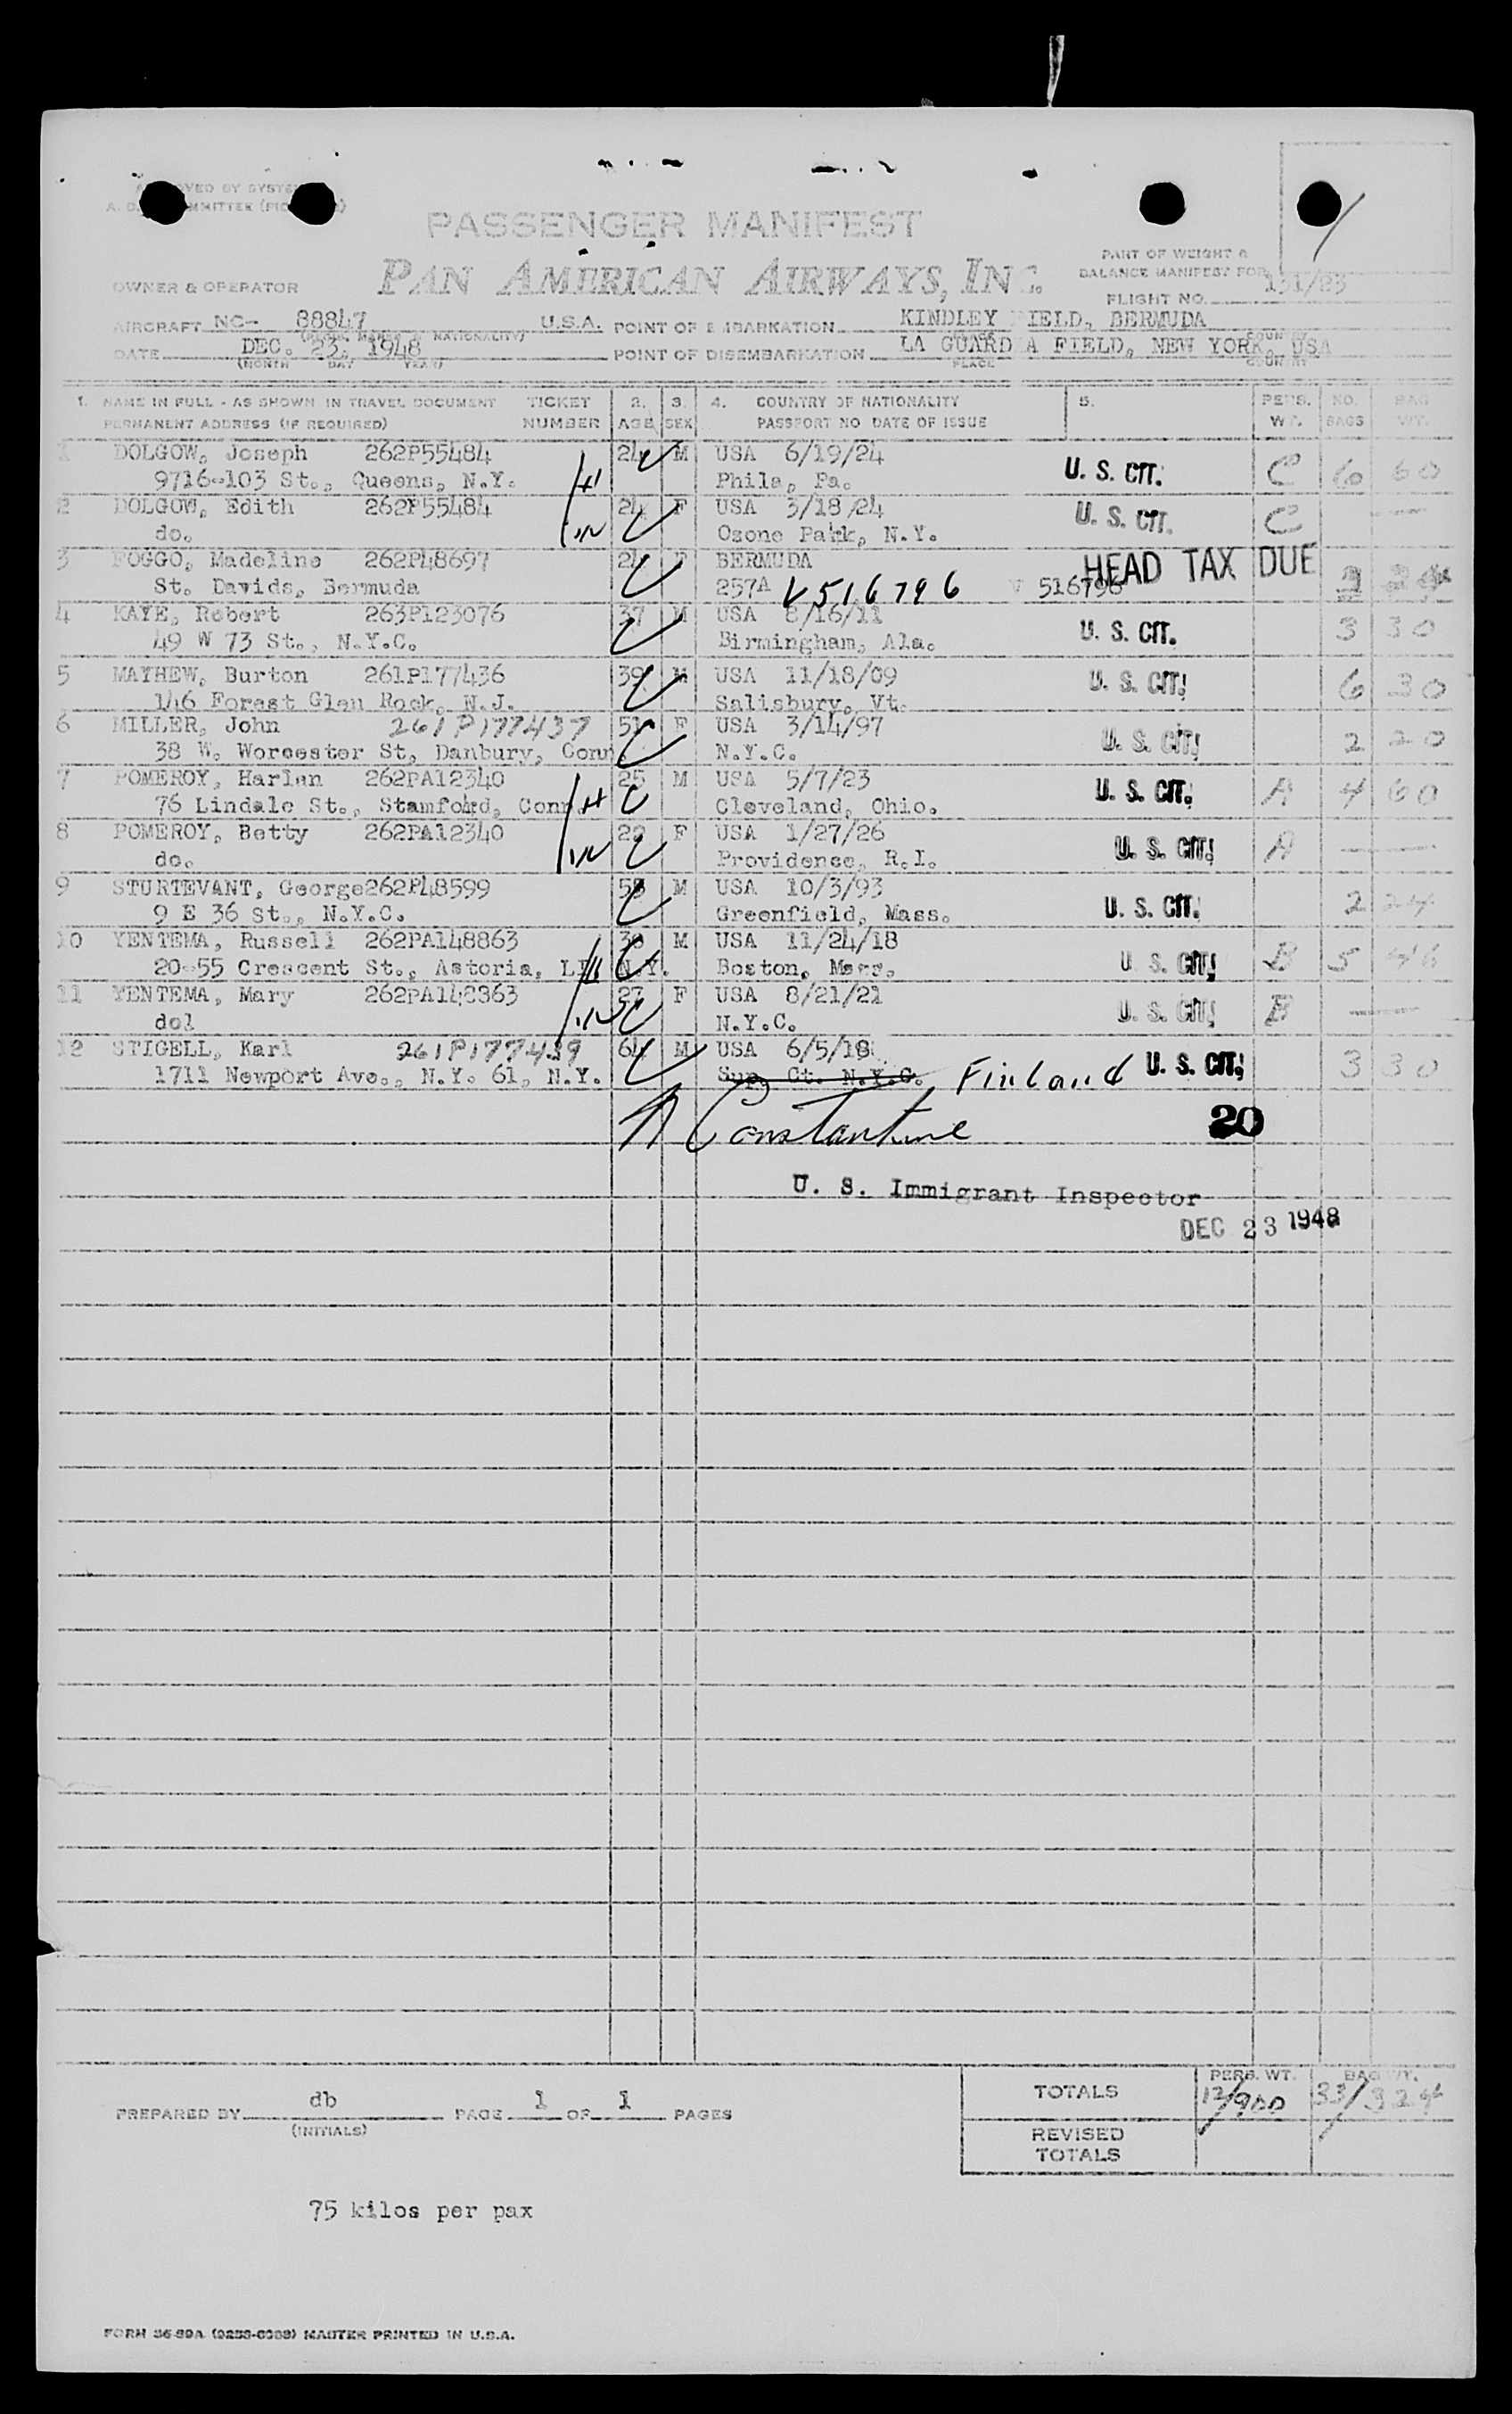 PASSENGER MANIFEST
PAN AMERICAN AIRWAYS, INC.
PART OF WEIGHT &
BALANCE MANIFEST FOR
FLIGHT NO. 131/23
OWNER & OPERATOR
AIRCRAFT NC- 88847 U.S.A. POINT OF EMBARKATION KINDLEY IELD, BERMUDA
DATE DEC. 23, 1948 POINT OF DISEMBARKATION LA GUARD A FIELD, NEW YORK, USA
(MONTH DAY YEAR) PLACE COUNTRY
1. NAME IN FULL - AS SHOWN IN TRAVEL DOCUMENT TICKET 2. 3. 4. COUNTRY OF NATIONALITY 5. PERS. NO. BAG
PERMANENT ADDRESS (IF REQUIRED) NUMBER AGE SEX PASSPORT NO DATE OF ISSUE WT. BAGS WT.
1 DOLGOW, Joseph 262P55484 24 M USA 6/19/24
9716-103 St., Queens, N.Y. H Phila, Pa. U. S. CIT. C 6 60
2 DOLGOW, Edith 262P55484 24 F USA 3/18/24 U. S. CIT. C
do. W Ozone Park, N.Y.
3 FOGGO, Madeline 262P48697 24 F BERMUDA HEAD TAX DUE
St. Davids, Bermuda 257A V516796 V 516796 2 24
4 KAYE, Robert 263P123076 37 M USA 8/16/11
49 W 73 St., N.Y.C. Birmingham, Ala. U. S. CIT. 3 30
5 MAYHEW, Burton 261P177436 39 M USA 11/18/09 U. S. CIT. 6 30
146 Forest Glen Rock, N.J. Salisbury, Vt.
6 MILLER, John 261P177437 51 F USA 3/14/97
38 W. Worcester St, Danbury, Conn. N.Y.C. U. S. CIT. 2 20
7 POMEROY, Harlan 262PA12340 25 M USA 5/7/23
76 Lindale St., Stamford, Conn. H Cleveland, Ohio. U. S. CIT. A 4 60
8 POMEROY, Betty 262PA12340 22 F USA 1/27/26
do. W Providence, R.I. U. S. CIT. A
9 STURTEVANT, George 262P48599 55 M USA 10/3/93
9 E 36 St., N.Y.C. Greenfield, Mass. U. S. CIT. 2 24
10 YENTEMA, Russell 262PA148863 30 M USA 11/24/18
20-55 Crescent St., Astoria, LI N.Y. Boston, Mass. U. S. CIT. B 5 46
11 YENTEMA, Mary 262PA148863 27 F USA 8/21/21
dol W N.Y.C. U. S. CIT. B
12 STIGELL, Karl 261P177439 64 M USA 6/5/18
1711 Newport Ave., N.Y. 61, N.Y. Sup. Ct. N.Y.C. Finland U. S. CIT. 3 30
N Constantine 20
U. S. Immigrant Inspector
DEC 23 1948
TOTALS PERS. WT. 12/900 BAG WT. 33/324
PREPARED BY db PAGE 1 OF 1 PAGES
(INITIALS)
REVISED
TOTALS
75 kilos per pax
FORM 36-89A MASTER PRINTED IN U.S.A.